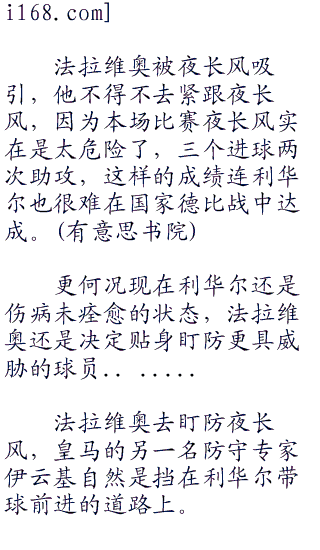 i168.com]
法拉维奥被夜长风吸
引，他不得不去紧跟夜长
风，因为本场比赛夜长风实
在是太危险了，三个进球两
次助攻，这样的成绩连利华
尔也很难在国家德比战中达
成。(有意思书院)
更何况现在利华尔还是
伤病未痊愈的状态，法拉维
奥还是决定贴身盯防更具威
胁的球员.. .....
法拉维奥去盯防夜长
风，皇马的另一名防守专家
伊云基自然是挡在利华尔带
球前进的道路上。